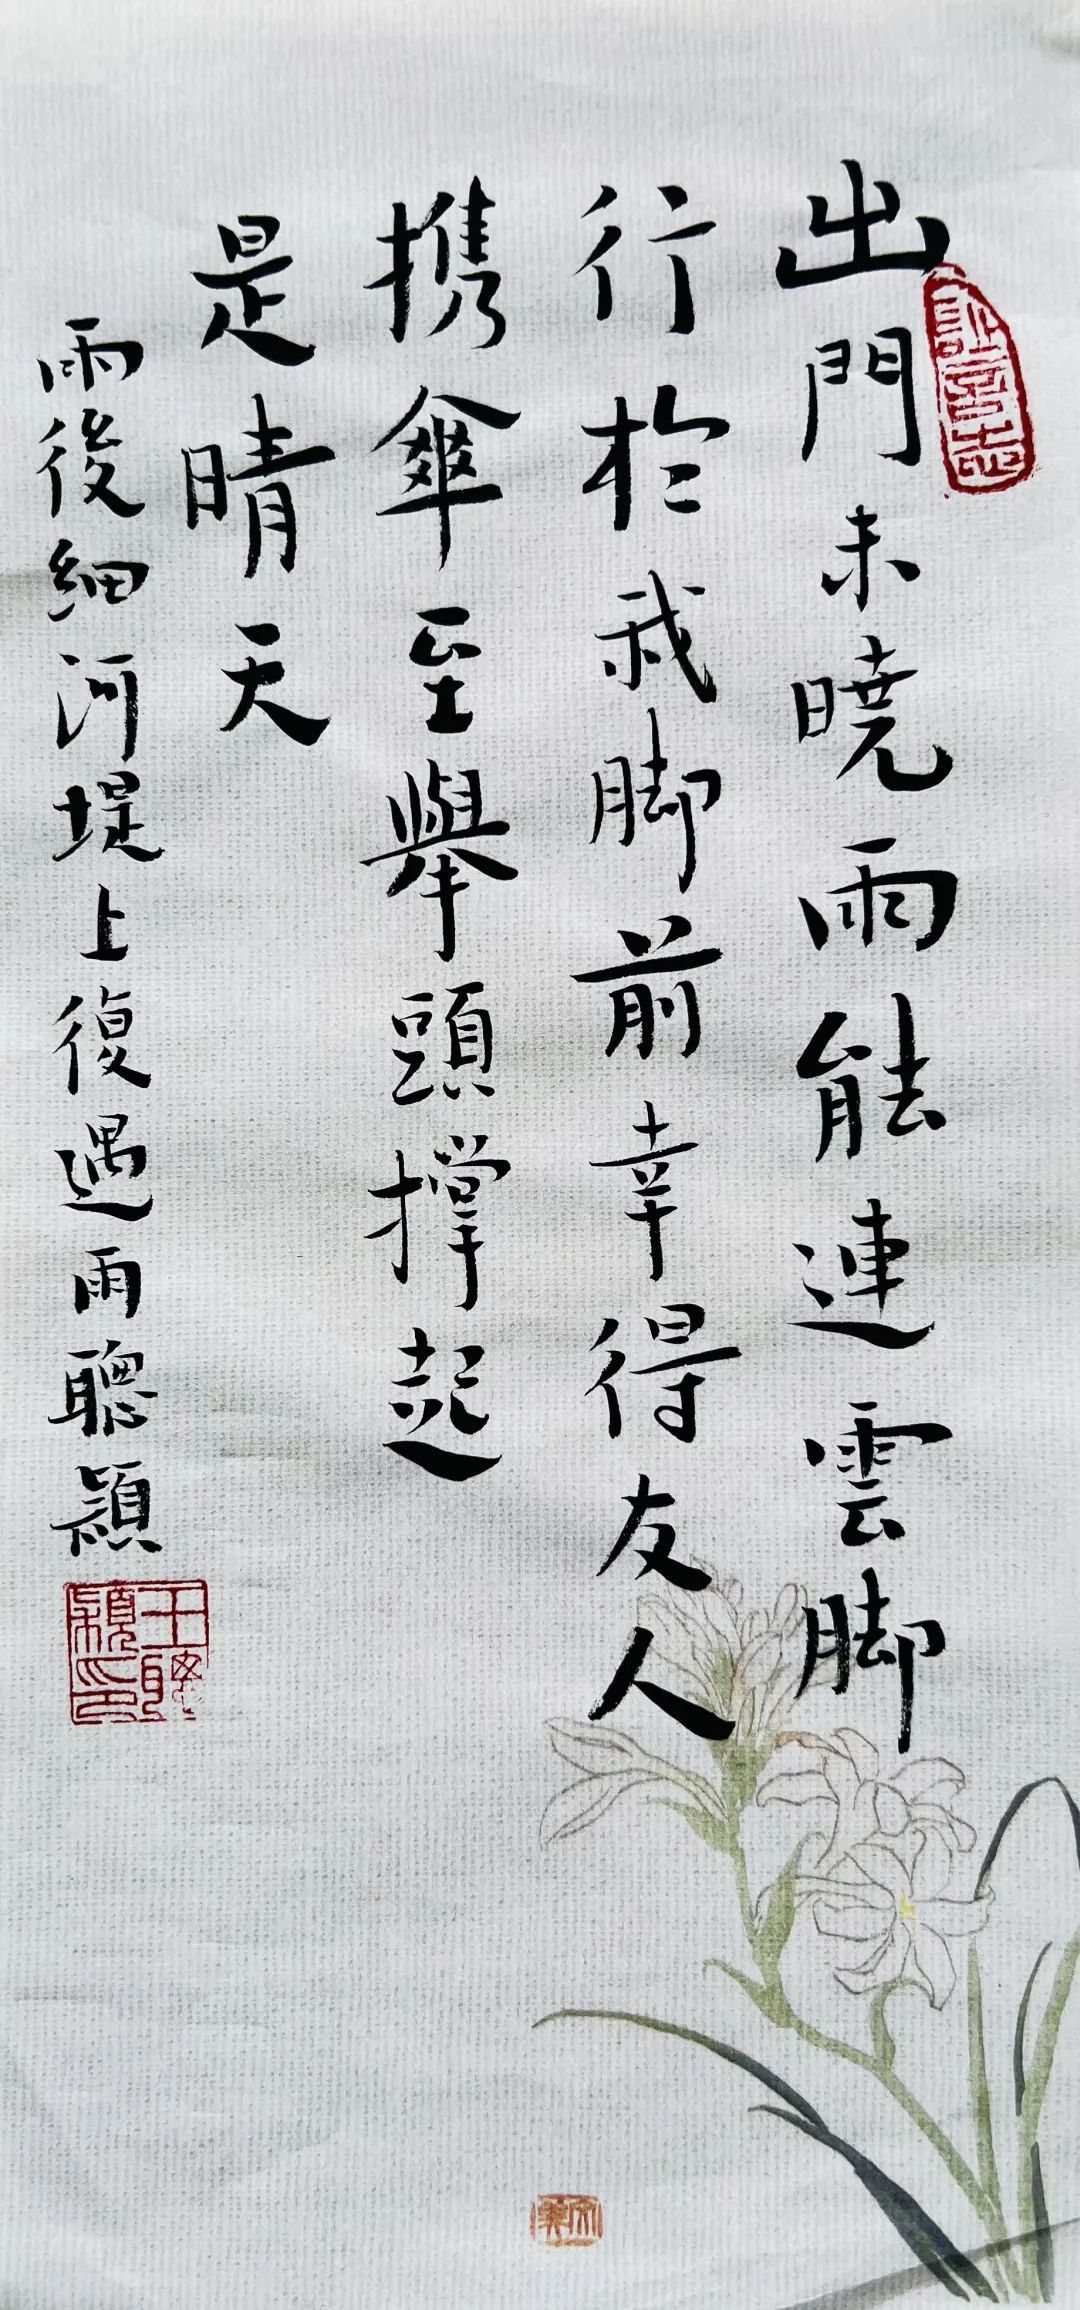 出門未曉雨能連雲脚
行於我脚前幸得友人
携傘至舉頭撑起
是晴天
雨後細河堤上復遇雨聰穎
王聰
穎印